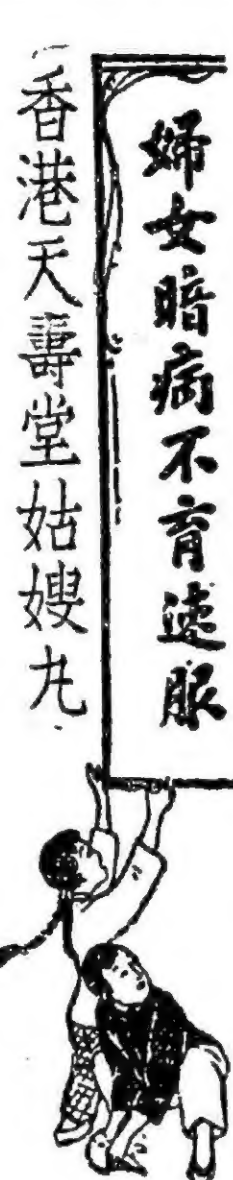 婦女暗病不育速服
香港天壽堂姑嫂丸